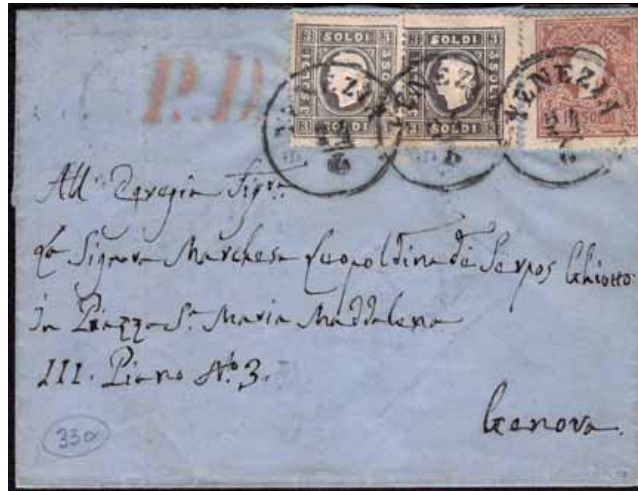 SOLDI SOLDI
3 SOLDI 3 SOLDI 3 SOLDI 3 SOLDI
P.D.
VENEZIA VENEZIA VENEZIA
All' Egregia Sigra.
La Signora Marchesa Leopoldina de Serpos Chiotto
In Piazza Sa. Maria Maddalena
III. Piano No. 3.
Genova.
330